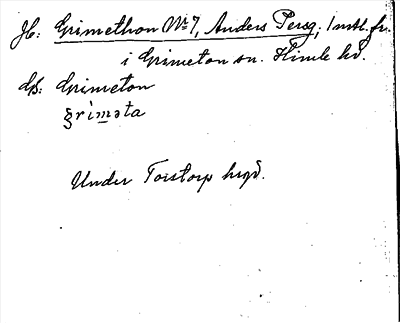 Jb: Grimethon Nr 7, Anders Persg, 1 mtl. fr.
i Grimeton sn. Himle hd.
Uβ: Grimeton
grìməta
Under Torstorp hvgd.